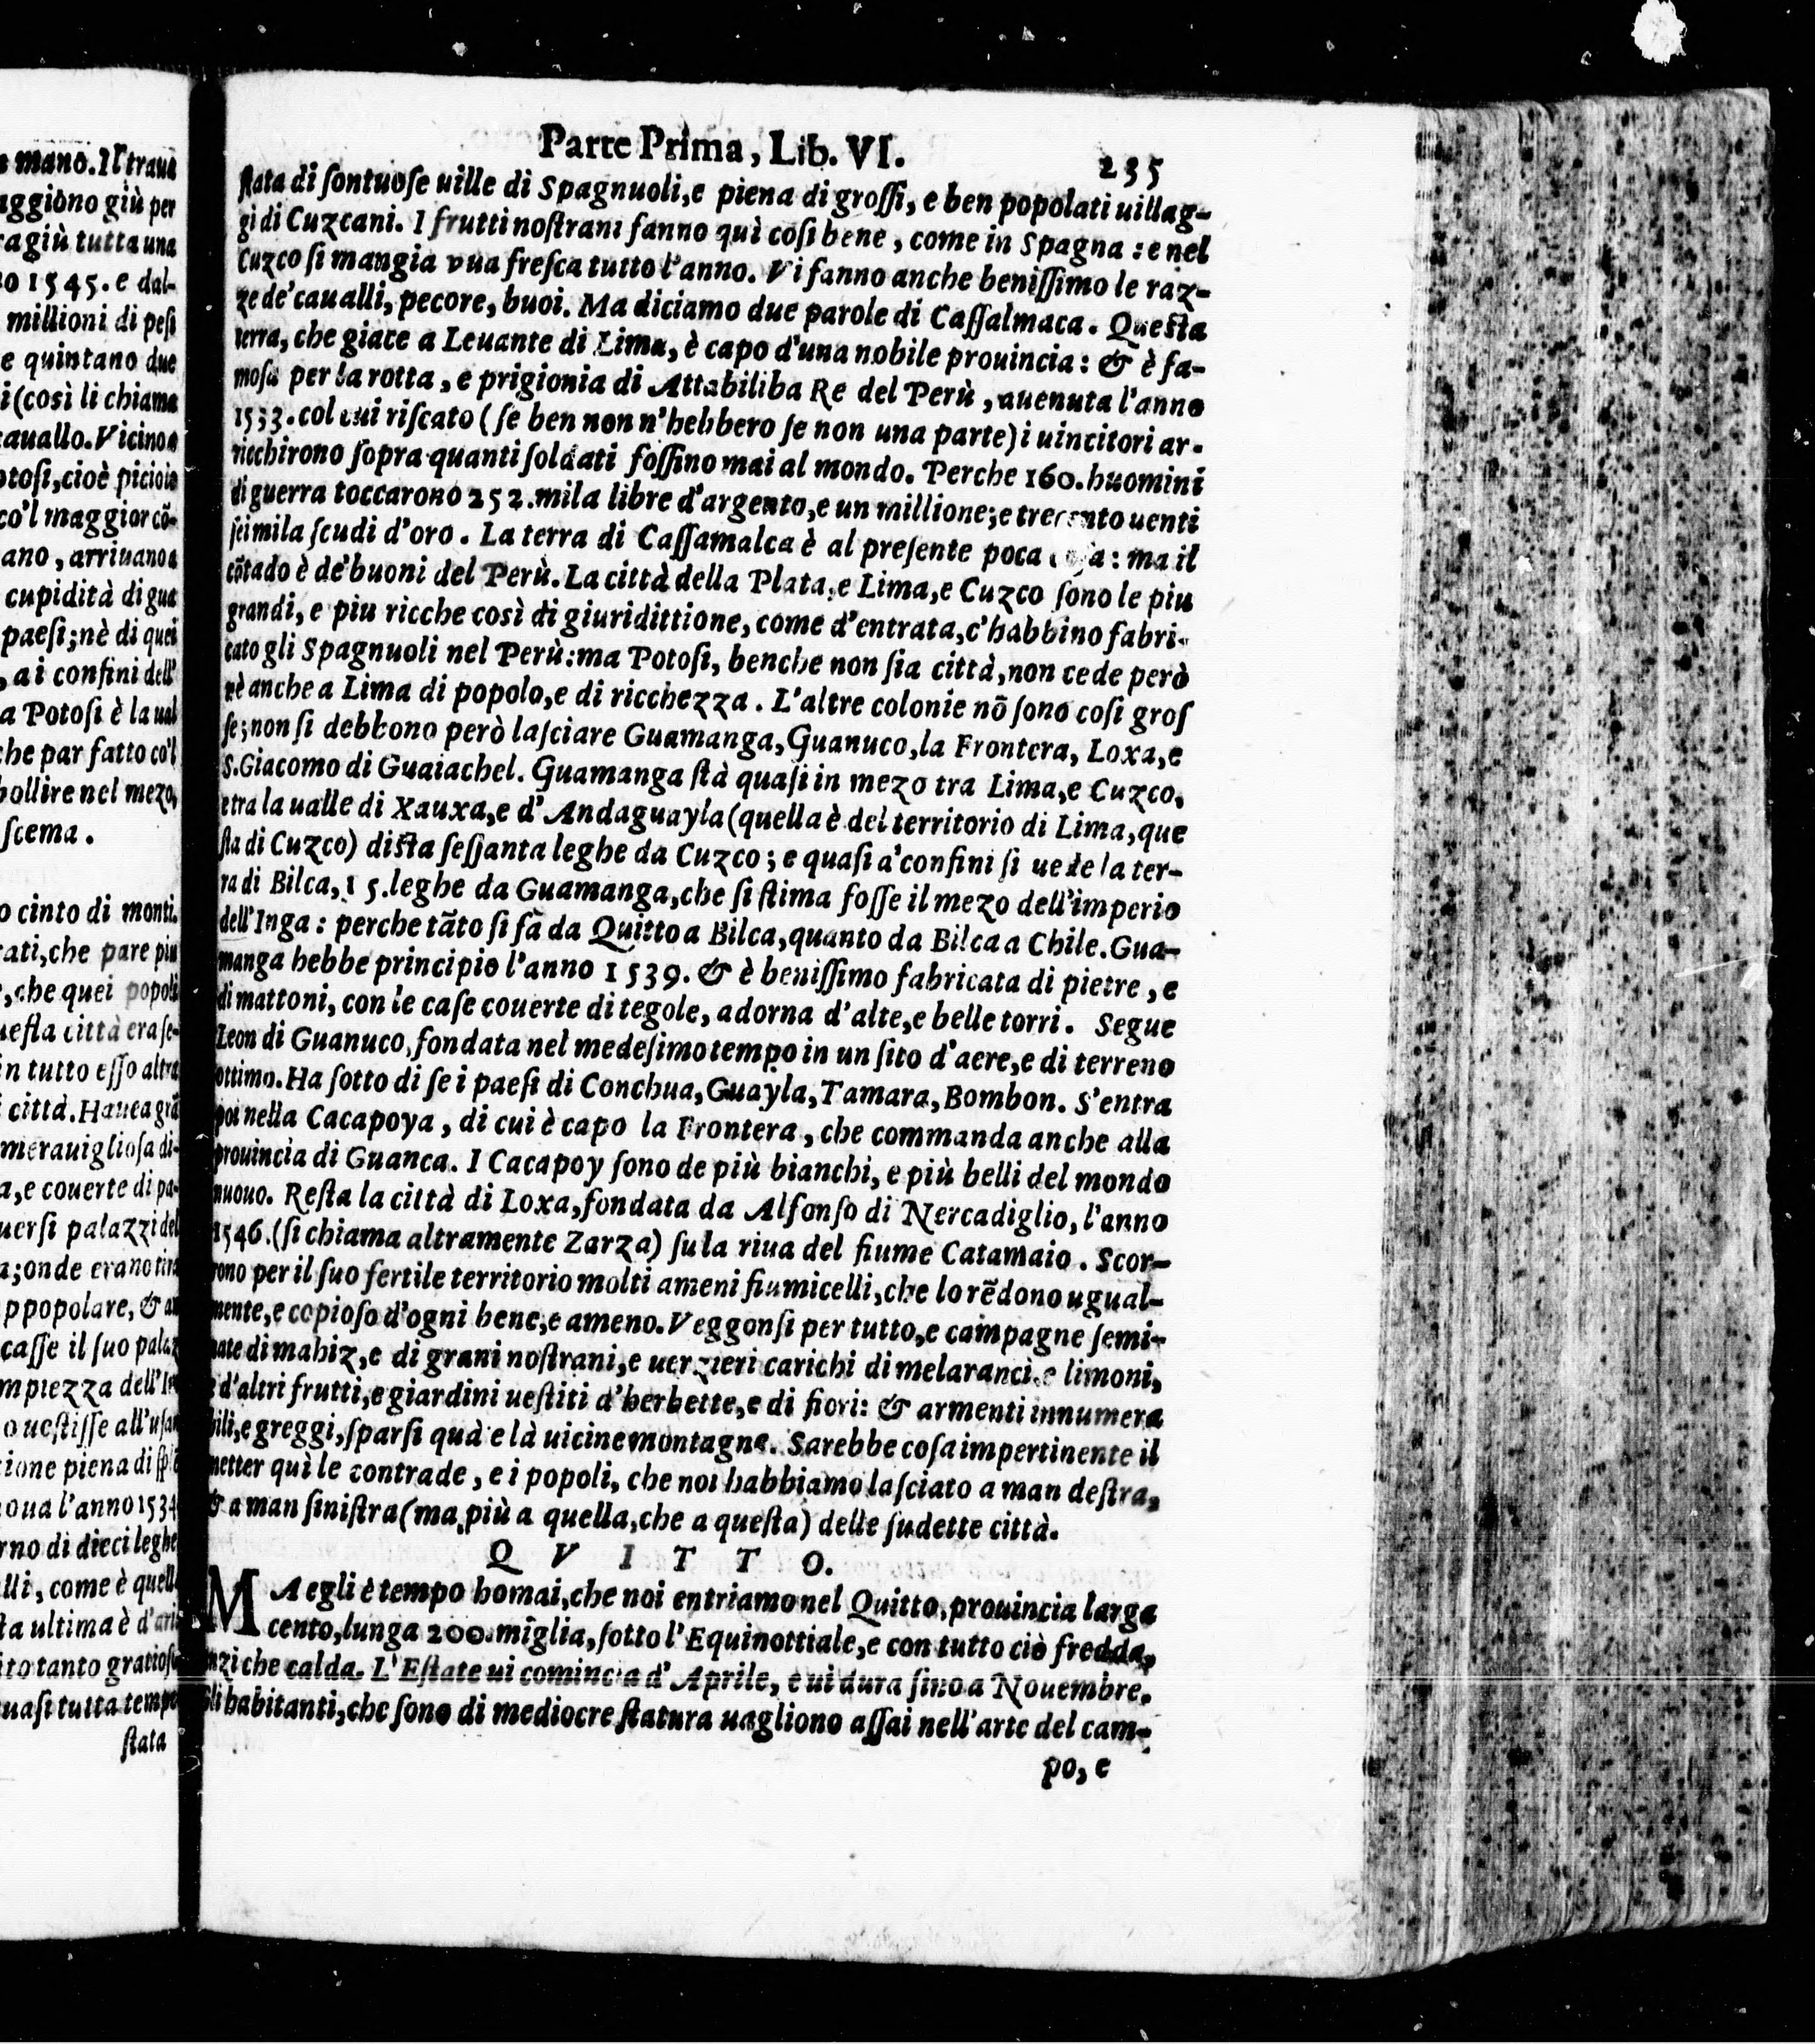 mano. Il traua
aggiono giù per
ragiù tutta una
1545. e dal-
millioni di pesi
e quintano due
i (così li chiama
cauallo. Vicino a
otosi, cioè picciolo
co'l maggior cõ-
ano, arriuano a
cupidità di gua
paesi; nè di quei
, a i confini dell'
a Potosi è la ual
che par fatto co'l
bollire nel mezo,
scema.
o cinto di monti.
ati, che pare più
, che quei popoli
uesta città era se-
in tutto esso altra
città. Hauea grã
merauigliosa di-
a, e couerte di pa-
uersi palazzi del
a; onde erano tira
ppopolare, & an
casse il suo palaz
mpiezza dell'In
o uestisse all'usan
ione piena di spl
oua l'anno 1534
rno di dieci leghe
lli, come è quell
ta ultima è d'ari
ito tanto gratioso
uasi tutta tempe
stata
Parte Prima, Lib. VI. 235
ſtata di ſontuoſe uille di Spagnuoli, e piena di groſſi, e ben popolati uillag-
gi di Cuzcani. I frutti noſtrani fanno quì coſi bene, come in Spagna: e nel
Cuzco ſi mangia vua freſca tutto l'anno. Vi fanno anche beniſſimo le raz-
ze de' caualli, pecore, buoi. Ma diciamo due parole di Caſſalmaca. Queſta
terra, che giace a Leuante di Lima, è capo d'una nobile prouincia: & è fa-
moſa per la rotta, e prigionia di Attabiliba Re del Perù, auenuta l'anno
1533. col cui riſcato (ſe ben non n'hebbero ſe non una parte) i uincitori ar-
ricchirono ſopra quanti ſoldati foſſino mai al mondo. Perche 160. huomini
di guerra toccarono 252. mila libre d'argento, e un millione; e trecento uenti
ſeimila ſcudi d'oro. La terra di Caſſamalca è al preſente poca coſa: ma il
cõtado è de' buoni del Perù. La città della Plata, e Lima, e Cuzco ſono le piu
grandi, e piu ricche così di giuridittione, come d'entrata, c'habbino fabri-
cato gli Spagnuoli nel Perù: ma Potoſi, benche non ſia città, non cede però
nè anche a Lima di popolo, e di ricchezza. L'altre colonie nõ ſono coſi groſ
ſe; non ſi debbono però laſciare Guamanga, Guanuco, la Frontera, Loxa, e
S. Giacomo di Guaiachel. Guamanga ſtà quaſi in mezo tra Lima, e Cuzco,
e tra la ualle di Xauxa, e d' Andaguayla (quella è del territorio di Lima, que
ſta di Cuzco) diſta ſeſſanta leghe da Cuzco; e quaſi a' confini ſi uede la ter-
ra di Bilca, 15. leghe da Guamanga, che ſi ſtima foſſe il mezo dell'imperio
dell'Inga: perche tãto ſi fà da Quitto a Bilca, quanto da Bilca a Chile. Gua-
manga hebbe principio l'anno 1539. & è beniſſimo fabricata di pietre, e
di mattoni, con le caſe couerte di tegole, adorna d'alte, e belle torri. Segue
Leon di Guanuco, fondata nel medeſimo tempo in un ſito d'aere, e di terreno
ottimo. Ha ſotto di ſe i paeſi di Conchua, Guayla, Tamara, Bombon. S'entra
poi nella Cacapoya, di cui è capo la Frontera, che commanda anche alla
prouincia di Guanca. I Cacapoy ſono de più bianchi, e più belli del mondo
nuouo. Reſta la città di Loxa, fondata da Alfonſo di Nercadiglio, l'anno
1546. (ſi chiama altramente Zarza) ſu la riua del fiume Catamaio. Scor-
rono per il ſuo fertile territorio molti ameni fiumicelli, che lo rẽdono ugual-
mente, e copioſo d'ogni bene, e ameno. Veggonſi per tutto, e campagne ſemi-
nate di mahiz, e di grani noſtrani, e uerzieri carichi di melaranci, e limoni,
e d'altri frutti, e giardini ueſtiti d'herbette, e di fiori: & armenti innumera
bili, e greggi, ſparſi quà e là uicine montagne. Sarebbe coſa impertinente il
metter quì le contrade, e i popoli, che noi habbiamo laſciato a man deſtra,
& a man ſiniſtra (ma più a quella, che a queſta) delle ſudette città.
Q V I T T O.
MA egli è tempo homai, che noi entriamo nel Quitto, prouincia larga
cento, lunga 200. miglia, ſotto l'Equinottiale, e con tutto ciò fredda,
anzi che calda. L'Eſtate ui comincia d' Aprile, e ui dura ſino a Nouembre.
Gli habitanti, che ſono di mediocre ſtatura uagliono aſſai nell'arte del cam-
po, e